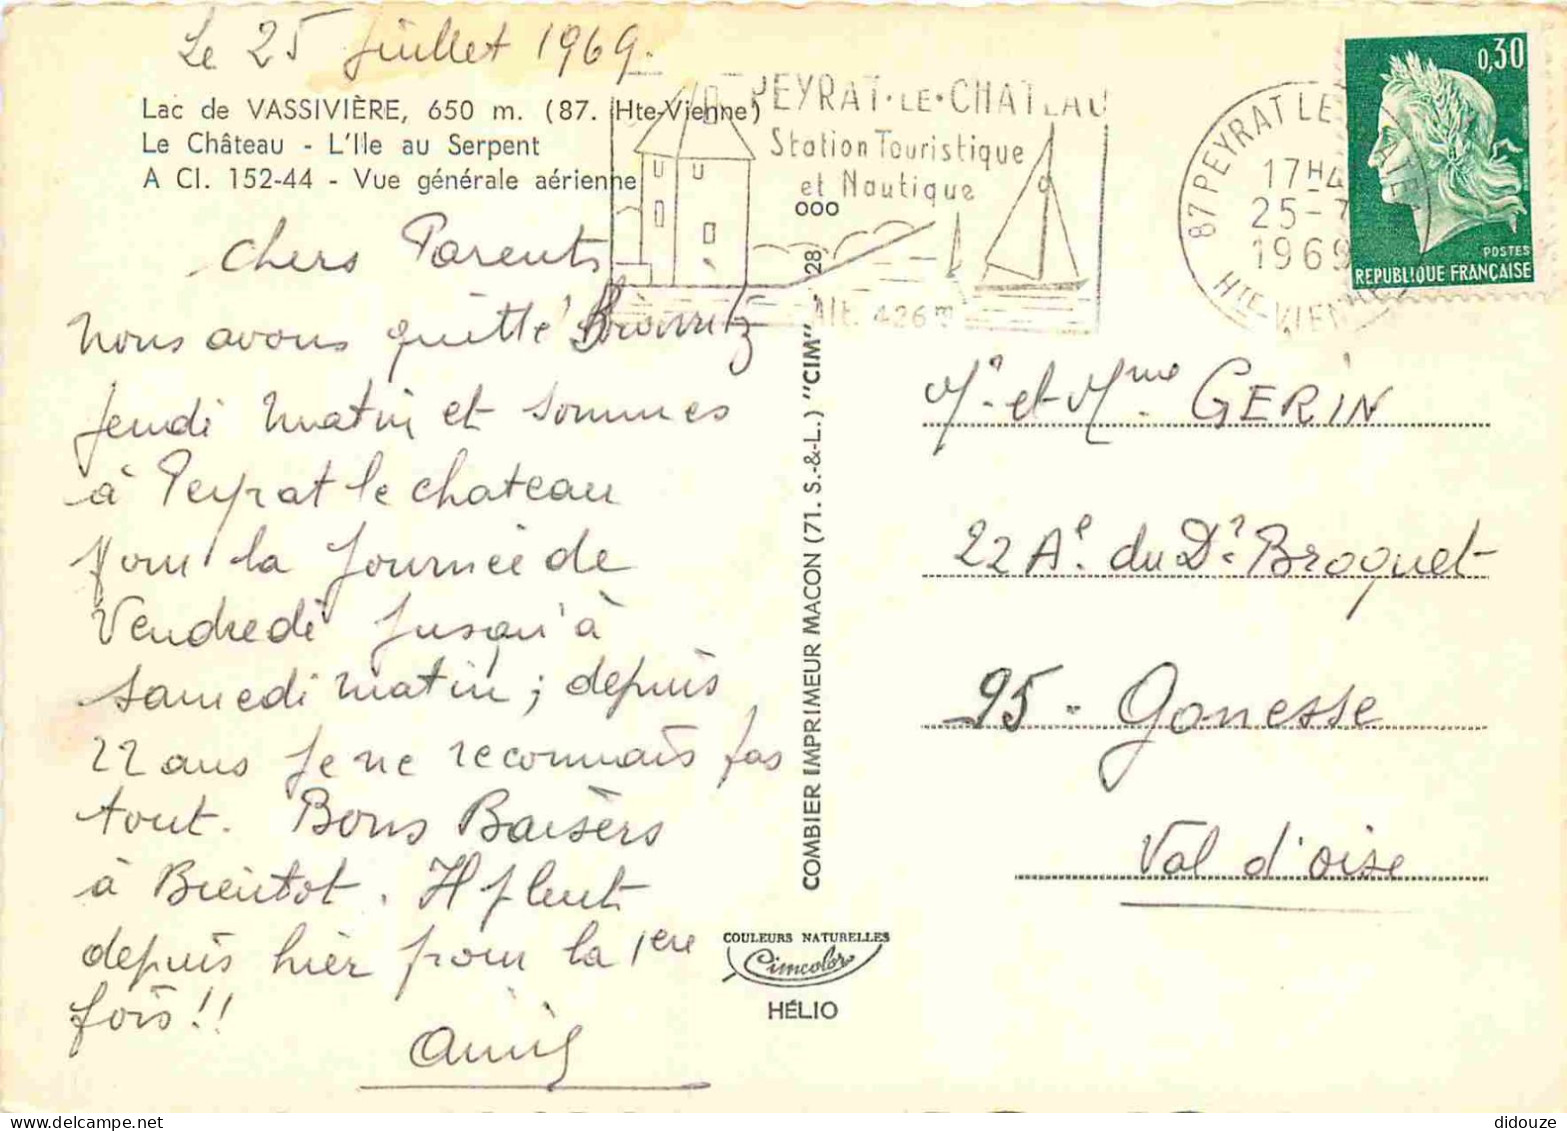 Le 25 Juillet 1969.
Lac de VASSIVIÈRE, 650 m. (87. Hte-Vienne)
Le Château - L'Ile au Serpent
A Cl. 152-44 - Vue générale aérienne
PEYRAT·LE·CHATEAU
Station Touristique
et Nautique
Alt. 426m
87 PEYRAT LE CHATEAU
17H4
25-7
1969
HTE-VIENNE
0,30
POSTES
REPUBLIQUE FRANÇAISE
chers Parents
nous avons quitté Biarritz
jeudi matin et sommes
à Peyrat le chateau
pour la journée de
Vendredi jusqu'à
samedi matin; depuis
22 ans je ne reconnais pas
tout. Bons Baisers
à Bientot. Il pleut
depuis hier pour la 1ere
fois!!
Mr. et Mme. GERIN
22 Ae. du Dr Broquet
95 - Gonesse
Val d'oise
COMBIER IMPRIMEUR MACON (71. S.-&-L.) "CIM" 28
000
COULEURS NATURELLES
Cimcolor
HÉLIO
delcampe.net
didouze